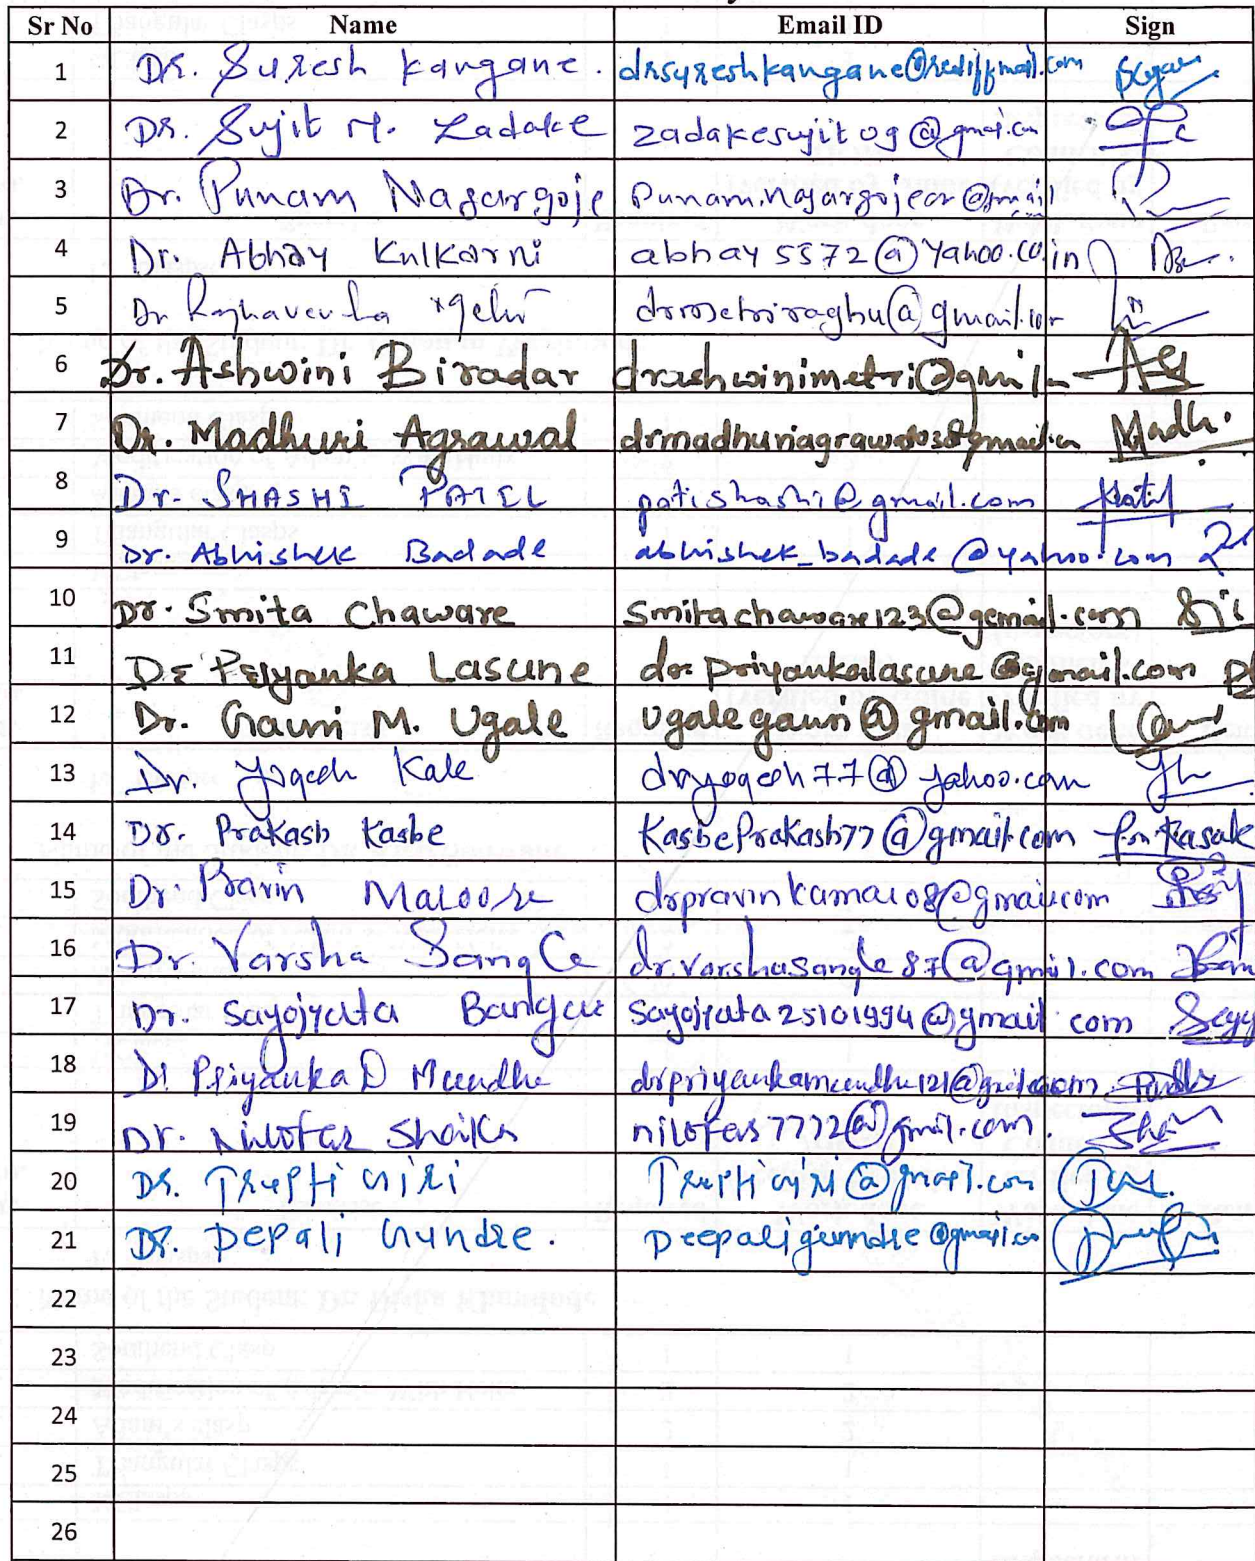 Sr No Name Email ID Sign
1 Dr. Suresh Kangane. drsureshkangane@rediffmail.com
2 Dr. Sujit M. Zadake zadakesujit09@gmai.cn
3 Dr. Punam Nagargoje Punam.nagargojeor@gmail
4 Dr. Abhay Kulkarni abhay5572@Yahoo.co.in
5 Dr
6 Dr. Ashwini Biradar drashwinimetri@gmil
7 Dr. Madhuri Agrawal Madh.
8 Dr. SHASHI PATEL patishashi@gmail.com Patil
9 Dr. Abhishek Badade abhishek_badade@yahoo.com
10 Dr. Smita Chaware Smitachaware123@gemail.com
11 Dr Priyanka Lasune dr.priyankalasune@gmail.com
12 Dr. Gauri M. Ugale ugalegauri@gmail.com
13 Dr. Yogesh Kale dryogesh77@yahoo.com
14 Dr. Prakash Kasbe KasbePrakash77@gmail.com
15 Dr. Pravin drpravinkamal08@gmail.com
16 Dr. Varsha Sangle dr.varshasangle87@gmail.com
17 Dr. Sayojyata Bangar Sayojyata25101994@gmail com
18 Dr Priyanka D Mundhe drpriyankamundhe121@gmail.com
19 Dr. Nilofar Shaikh nilofers7772@gmil.com.
20 Dr. Trupti Giri Truptigiri@gmail.com
21 Dr. Depali Gundre. Deepaligundre@gmail.co
22
23
24
25
26